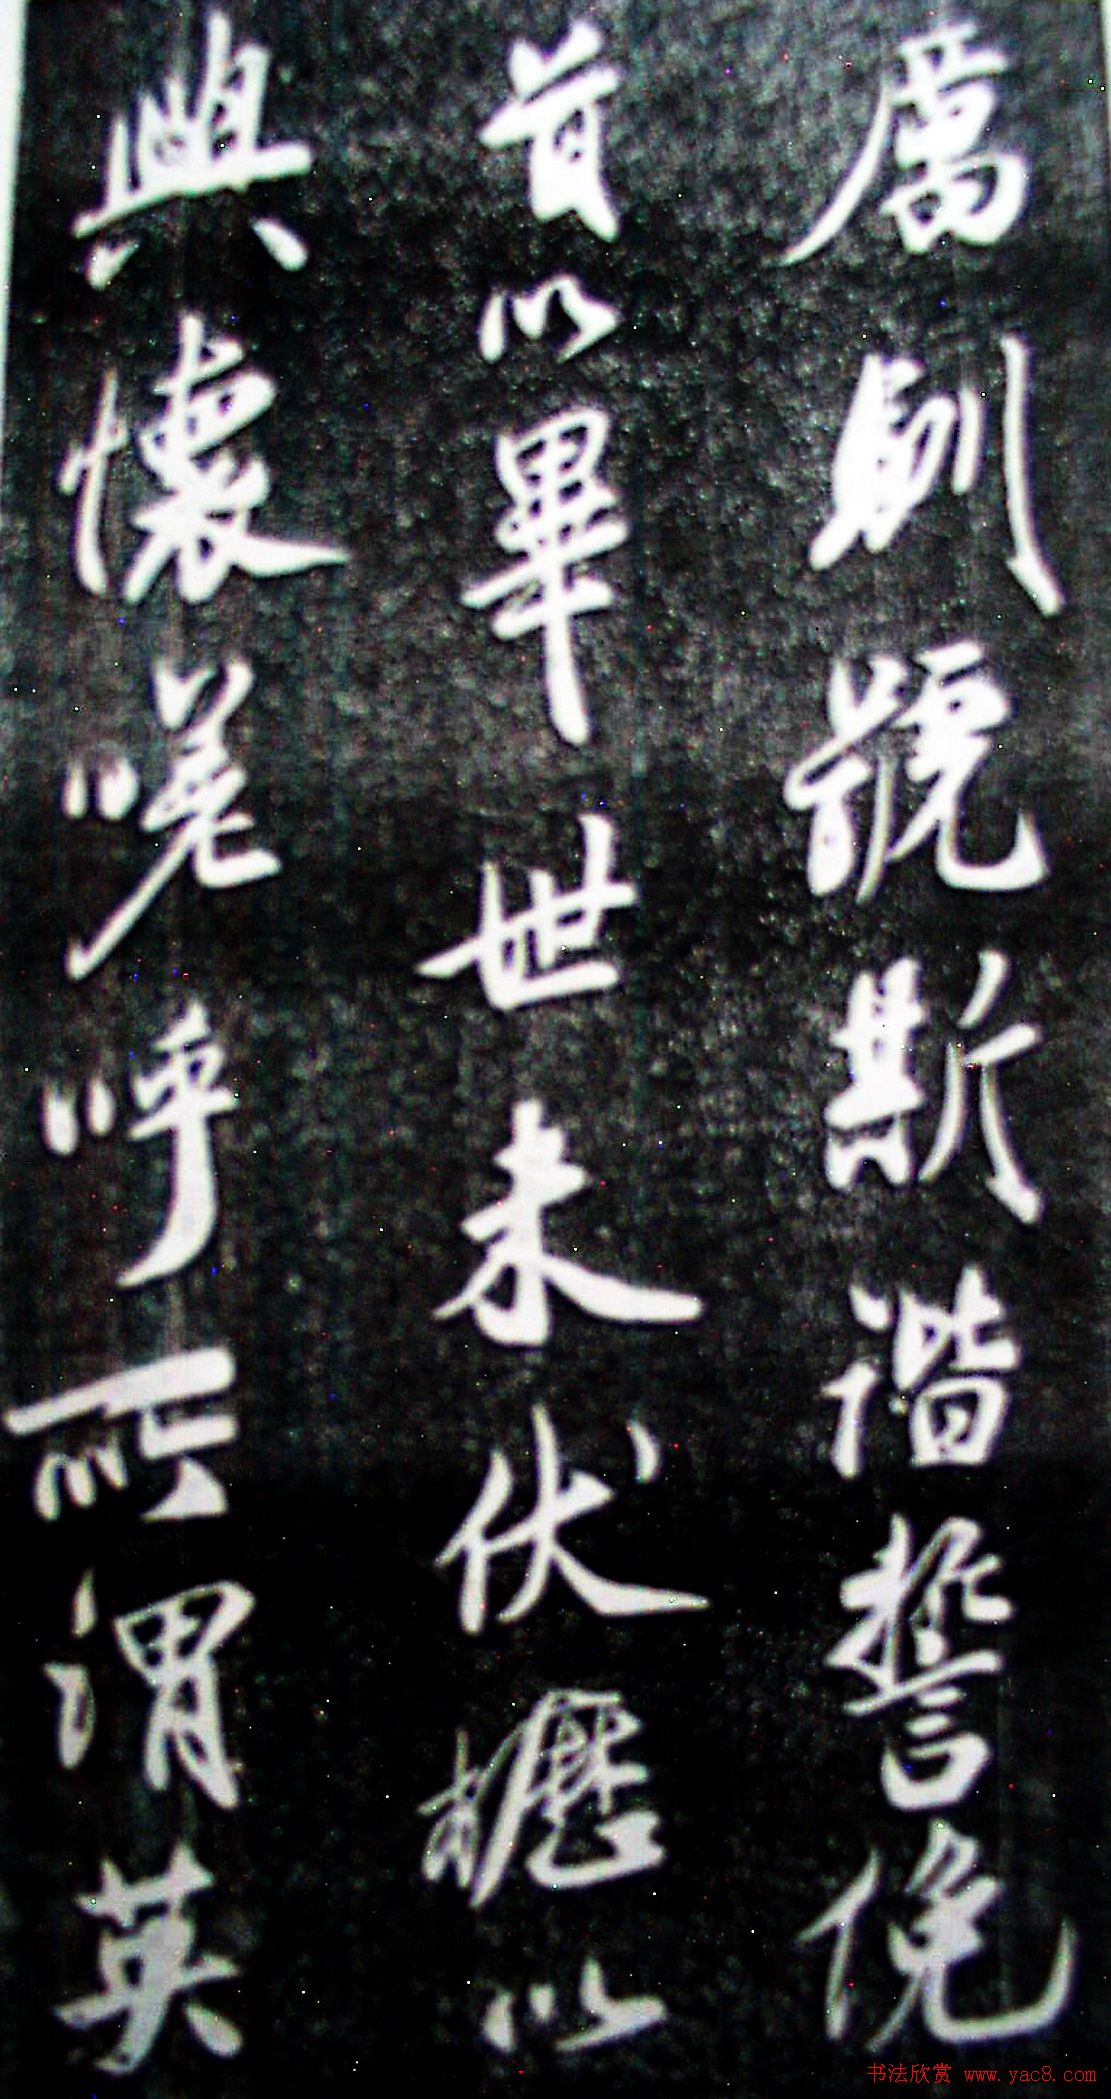 厲則號斯諧誓俛
首以畢世未伏櫪以
興懷嗟呼所謂英
书法欣赏 www.yac8.com